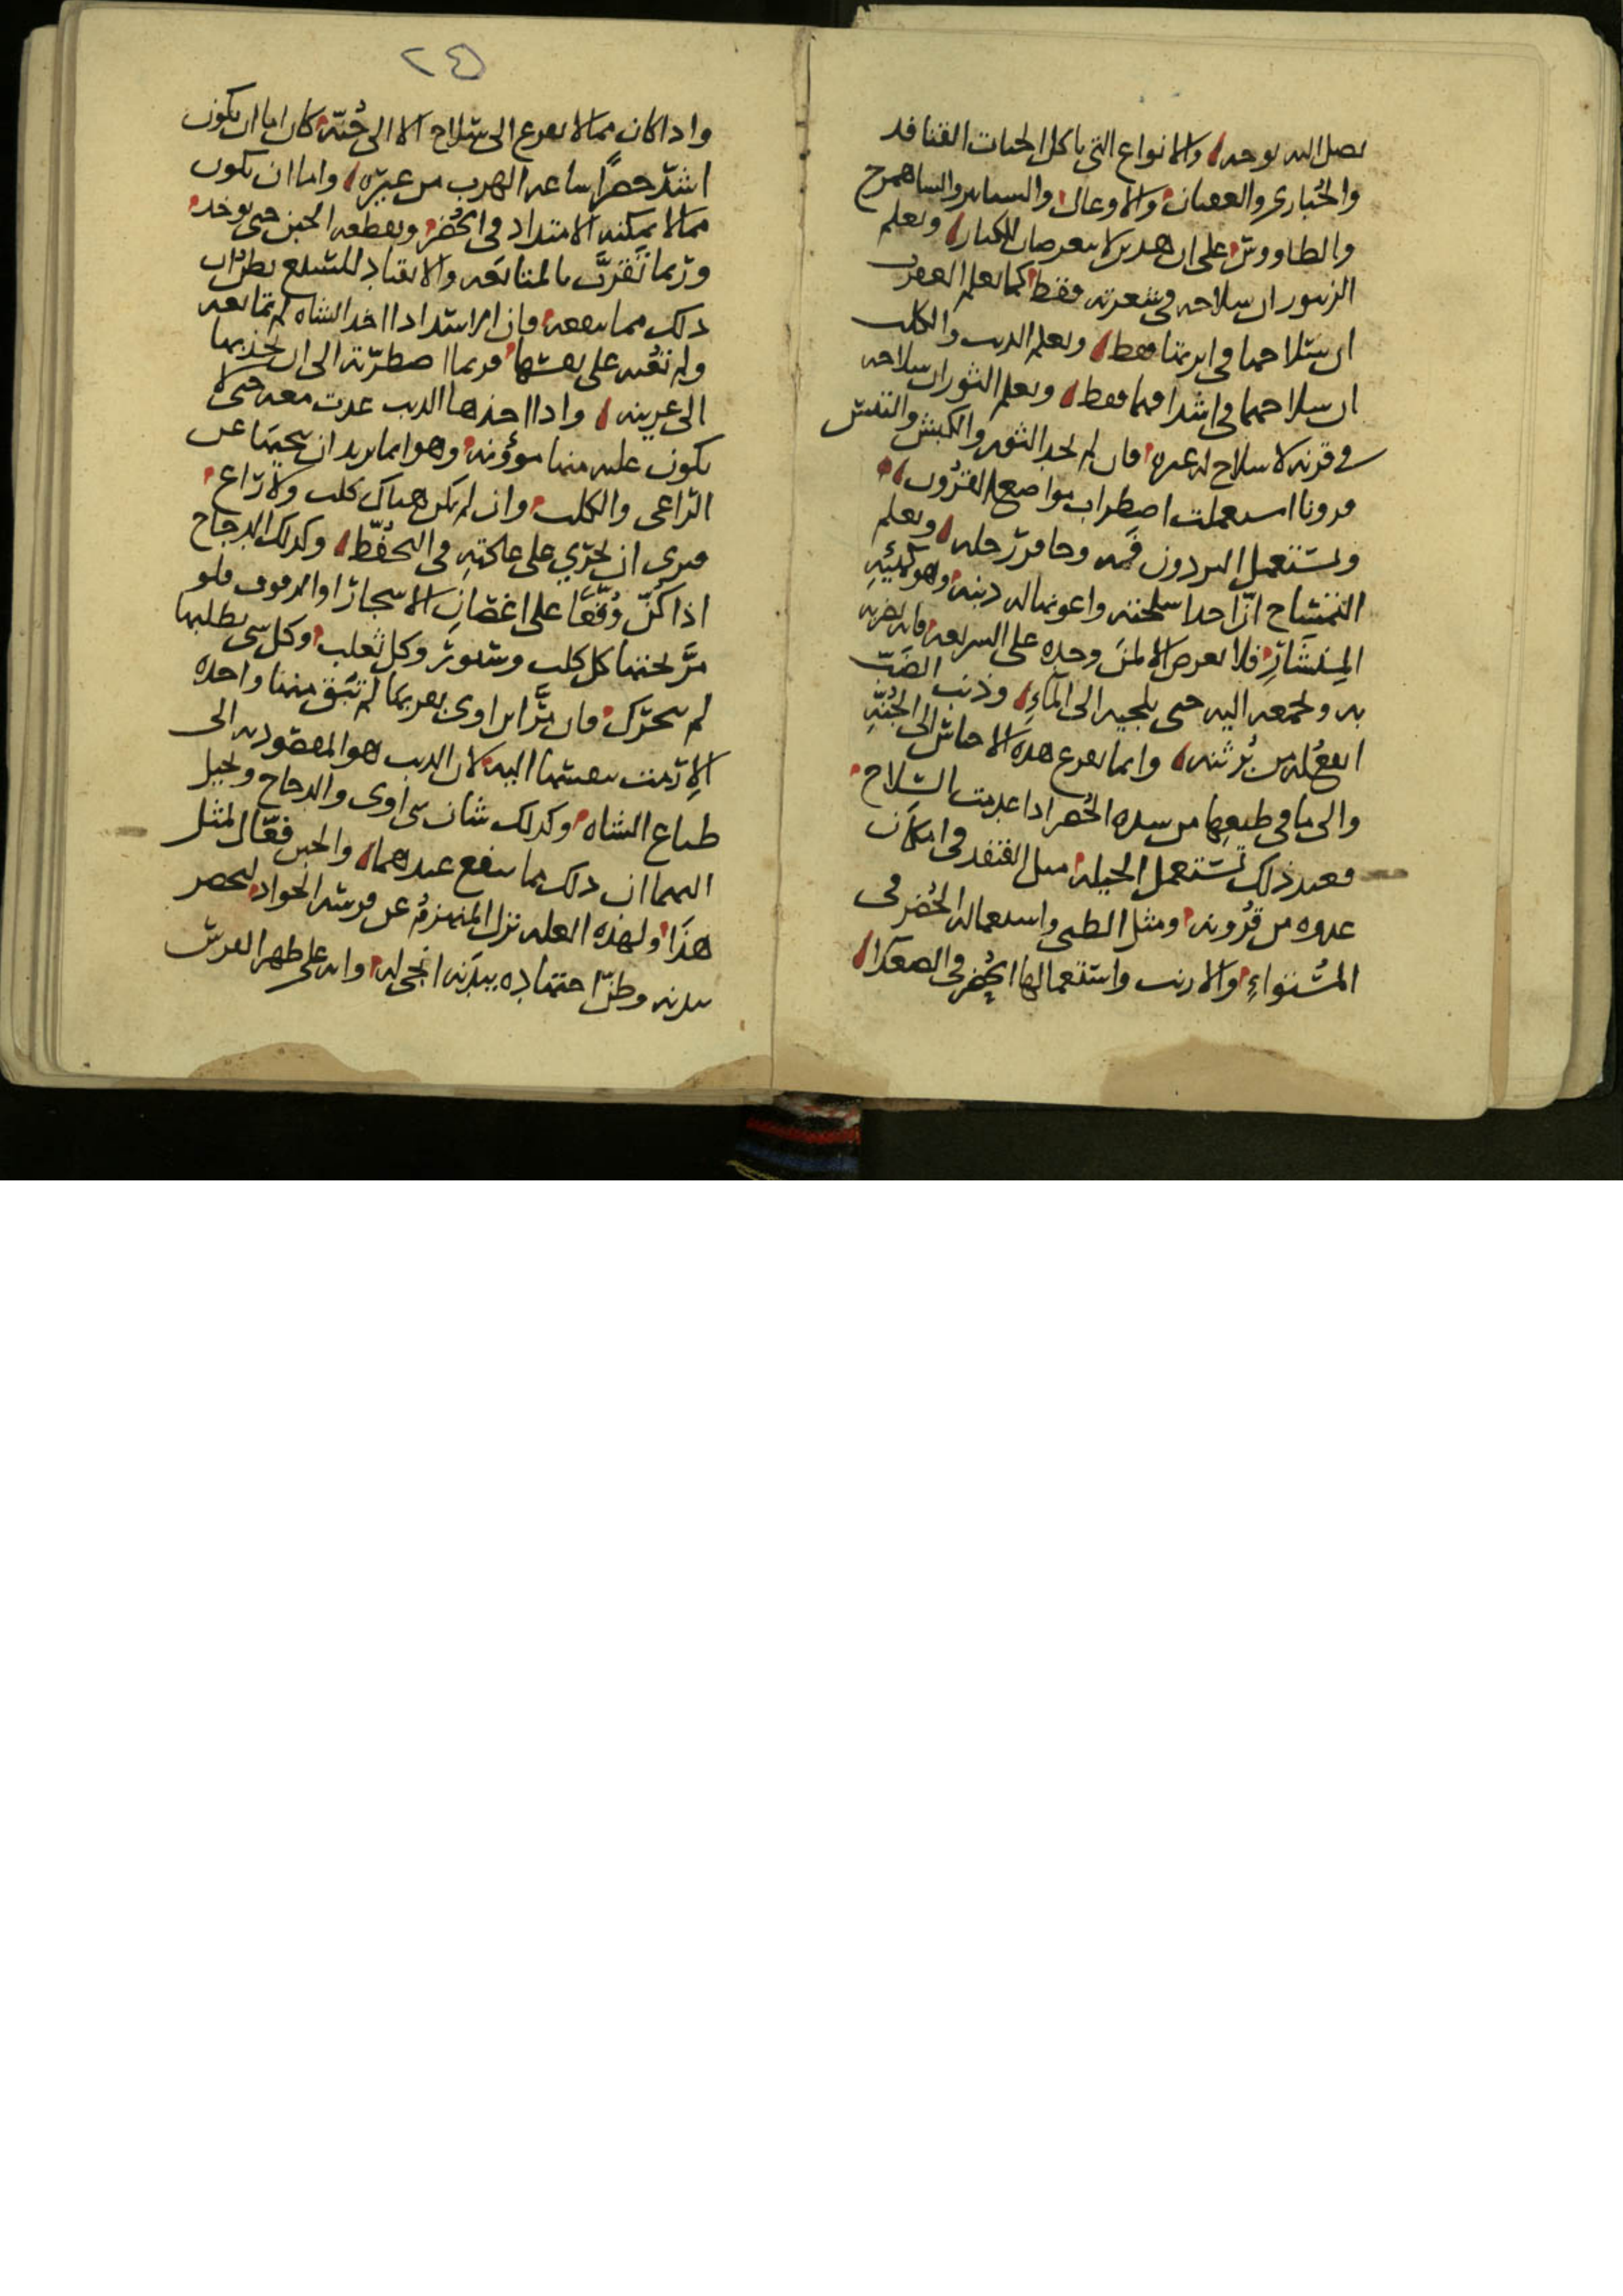 يصل اليه يوجده والانواع التي تاكل الحيات القنافد
والحباري والعقبان والاوعال والسنانير والساهمرح
والطاووس على ان هدين لا يعرضان للكبار ويعلم
الزنبور ان سلاحه في شعرته فقط كما يعلم العقرب
ان سلاحها في ابرتها فقط ويعلم الديب والكلب
ان سلاحهما في اشداقهما فقط ويعلم الثور ان سلاحه
في قرنه لا سلاح له غيره فان لم يجد الثور والكبش والتيس
قرونا استعملت اضطراب مواضع القرون
ويستعمل البردون فمه وحافر رجله ويعلم
التمساح ان احد اسلحته واعونها له دنبه وهو كهيئة
المنشار فلا يعرض الا لمن وجده على الشريعة فانه يضربه
به ويجمعه اليه حتى يلجيه الى الماء وذنب الضب
انفع له من برثنه وانما يفزع هده الاحناس الى الجنة
والى ما في طبعها من شده الحضر ادا عدمت السلاح
فعند ذلك تستعمل الحيلة مثل القنفد في امكان
عدوه من قرونه ومثل الظبي واستعماله الحضر في
المستواء والارنب واستعمالها الحضر في الصعدا
٢٤
وادا كان مما لا يفزع الى سلاح الا الى جنة كان اما ان يكون
اشد حضرا ساعه الهرب من غيره واما ان يكون
مما لا يمكنه الامتداد في الحضر ويقطعه الجبن حتى يوخد
وربما تقرب بالمتابعه والانقياد للسبع يظن ان
دلك مما ينفعه فان الاسد ادا اخد الشاه لم تتابعه
ولم تعنه على نفسها فربما اضطرته الى ان يجذبها
الى عرينه وادا اخذها الديب عدت معه حتى لا
يكون عليه منها مؤونه وهو انما يريد ان ينحيها عن
الراعي والكلب وان لم يكن هناك كلب ولا راع
فيرى ان يجري على عادته في التحفظ وكدلك الدجاج
اذا كن وقعا على اغصان الاشجار او الرفوف فلو
مر تحتها كل كلب وسنور وكل ثعلب وكل شي يطلبها
لم يتحرك فان مر ابن اوى بقربها لم تبق منها واحده
الا رمت بنفسها اليه لان الديب هو المقصود به الى
طباع الشاه وكدلك شان بني اوى والدجاج ويخيل
اليهما ان دلك مما ينفع عندهما والجبن فعال لمثل
هذا ولهذه العله نزل المنهزم عن فرسه الجواد ليحضر
ببدنه وظن اجتهاده ببدنه انجى له وانه على ظهر الفرس